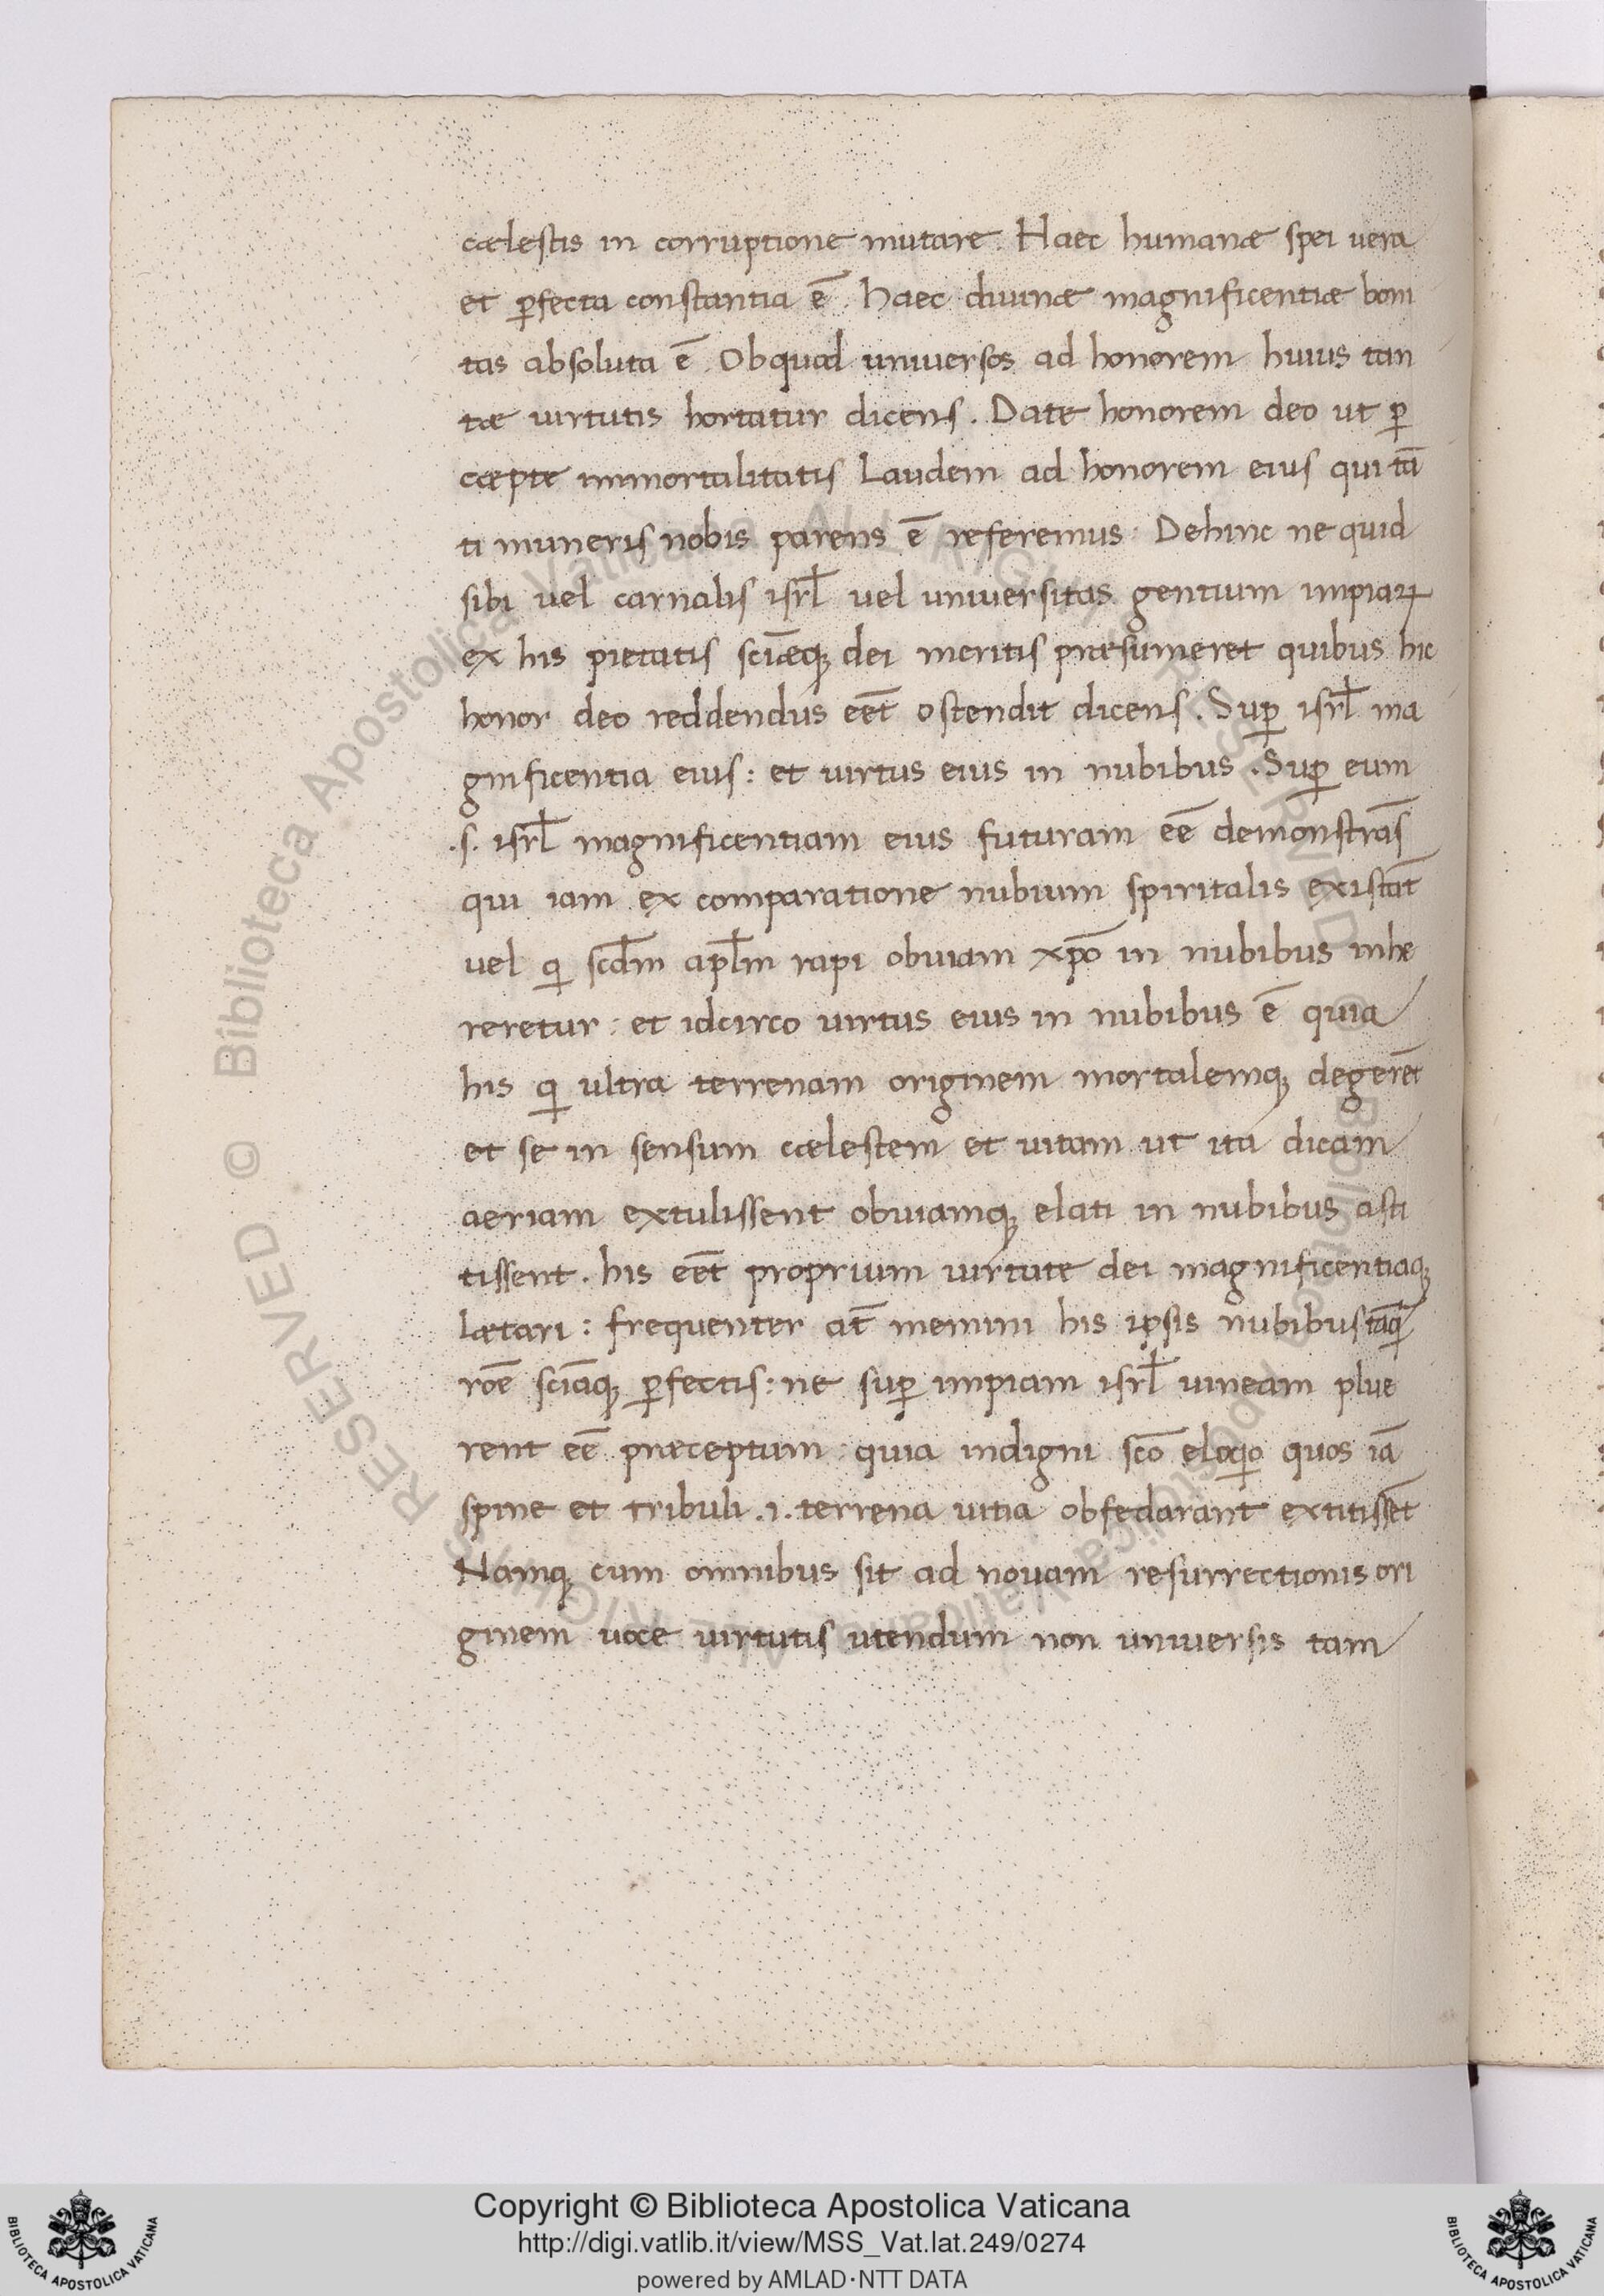 cælestis in corruptione mutare. Haec humanæ spei vera
et ꝑfecta constantia ē. Haec diuinæ magnificentiæ boni
tas absoluta ē. Obquod universos ad honorem huius tan
tæ uirtutis hortatur dicens. Date honorem deo ut ꝑ
cæpte immortalitatis Laudem ad honorem eius qui tā
ti muneris nobis parens ē referemus: Dehinc ne quid
sibi vel carnalis isrl̄ vel universitas gentium impiaꝝ
ex his pietatis sciǣq; dei meritis præsumeret quibus hic
honor deo reddendus eēt ostendit dicens. Suꝑ isrl̄ ma
gnificentia eius: et uirtus eius in nubibus. Suꝑ eum
.s. isrl̄ magnificentiam eius futuram eē demonstrās
qui iam ex comparatione nubium spiritalis existāt
uel ꝗ scd̄m apl̄m rapi obuiam xp̄o in nubibus inhe
reretur: et idcirco uirtus eius in nubibus ē quia
his ꝗ ultra terrenam originem mortalemq; degerēt
et se in sensum cælestem et uitam ut ita dicam
aeriam extulissent obuiamq; elati in nubibus asti
tissent. his eēt proprium uirtute dei magnificentiaq;
lætari: frequenter at̄ memini his ipsis nubibus tāꝗ
rōe sciāq; ꝑfectis: ne suꝑ impiam isrl̄ uineam plue
rent eē præceptum: quia indigni scō eloꝗo quos iā
spine et tribuli .i. terrena uitia obfedarant extitissēt
Namq; cum omnibus sit ad novam resurrectionis ori
ginem uoce uirtutis utendum non universis tam
Copyright © Biblioteca Apostolica Vaticana
http://digi.vatlib.it/view/MSS_Vat.lat.249/0274
powered by AMLAD·NTT DATA
BIBLIOTECA APOSTOLICA VATICANA
BIBLIOTECA APOSTOLICA VATICANA